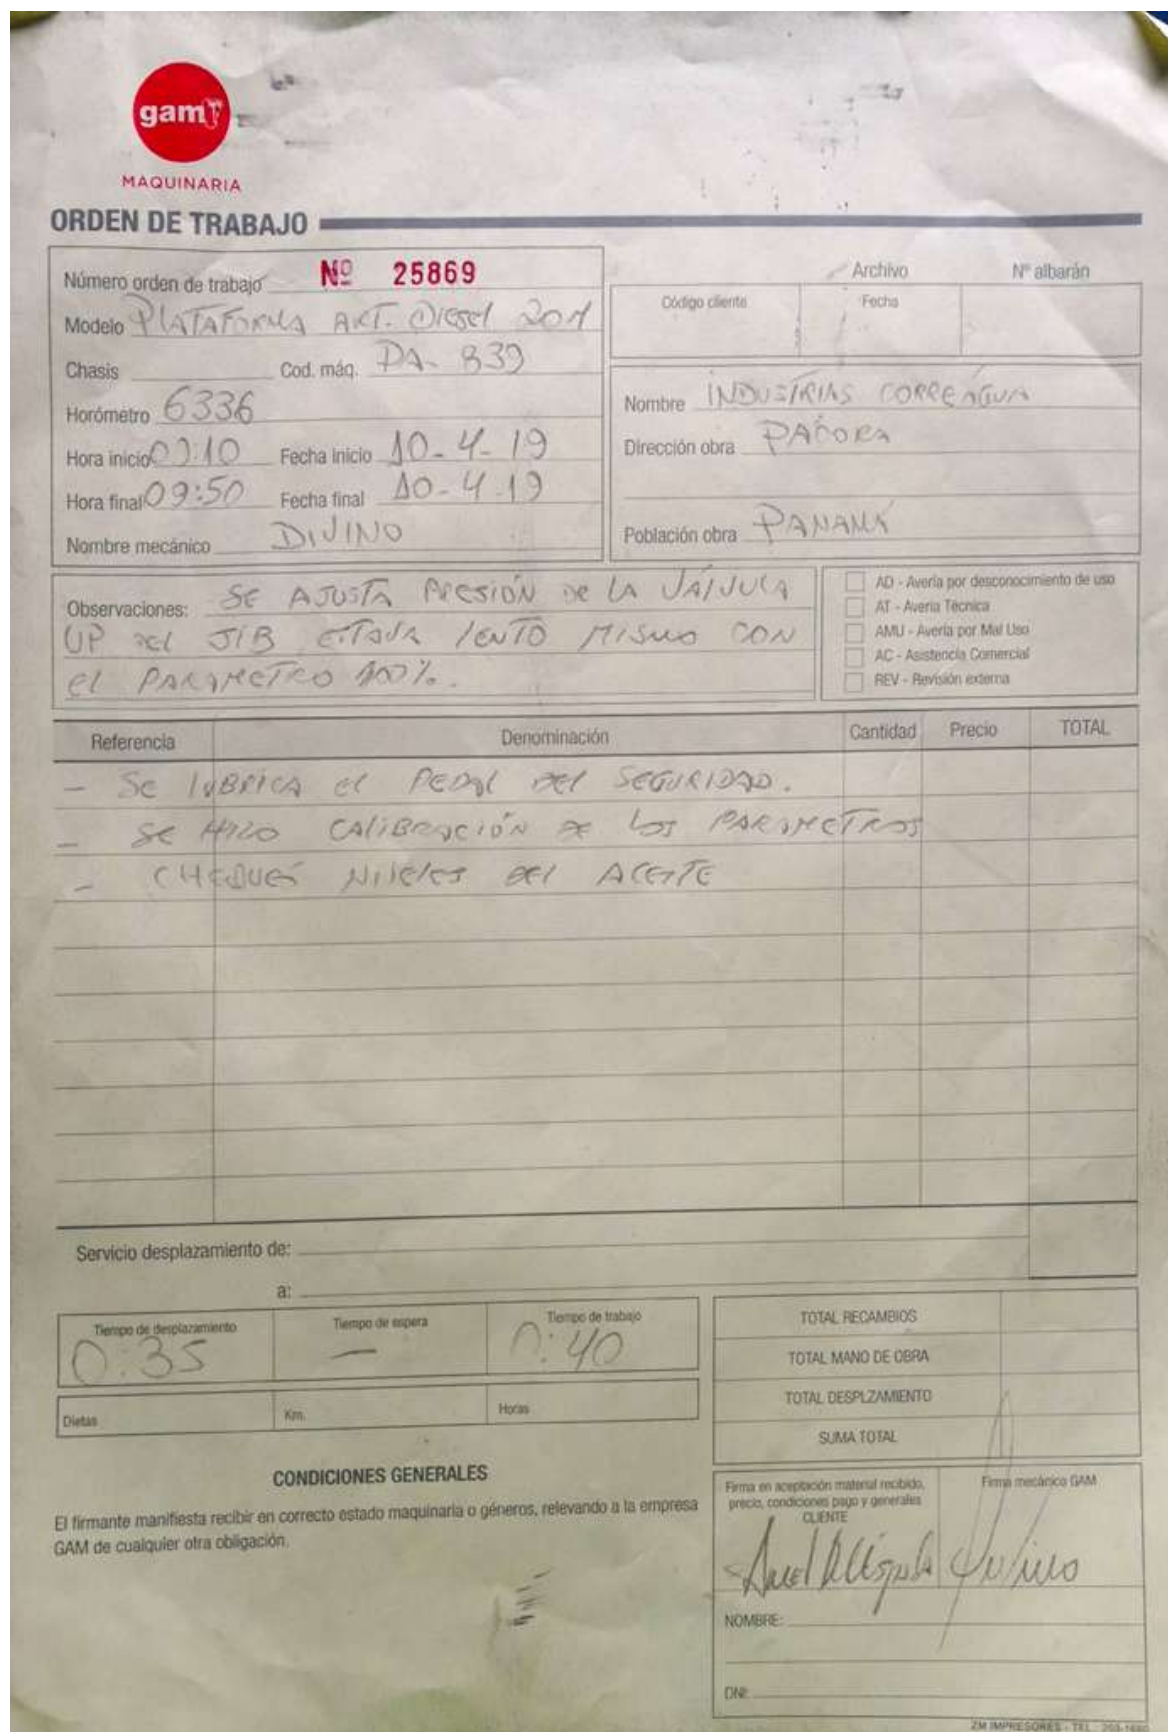 gam
MAQUINARIA
ORDEN DE TRABAJO
Número orden de trabajo Nº 25869
Modelo PLATAFORMA ART. DIESEL 20M
Chasis Cod. máq. PA-839
Horómetro 6336
Hora inicio 09:10 Fecha inicio 10-4-19
Hora final 09:50 Fecha final 10-4-19
Nombre mecánico DIVINO
Archivo Nº albarán
Código cliente Fecha
Nombre INDUSTRIAS CORREAGUA
Dirección obra PACORA
Población obra PANAMÁ
Observaciones: SE AJUSTA PRESIÓN DE LA VÁLVULA
UP DEL JIB ESTAVA LENTO MISMO CON
EL PARAMETRO 100%.
AD - Avería por desconocimiento de uso
AT - Avería Técnica
AMU - Avería por Mal Uso
AC - Asistencia Comercial
REV - Revisión externa
Referencia Denominación Cantidad Precio TOTAL
- SE LUBRICA EL PEDAL DEL SEGURIDAD.
- SE HIZO CALIBRACIÓN DE LOS PARAMETROS
- CHEQUEÓ NIVELES DEL ACEITE
Servicio desplazamiento de:
a:
Tiempo de desplazamiento Tiempo de espera Tiempo de trabajo
0:35 — 0:40
Dietas Km. Horas
TOTAL RECAMBIOS
TOTAL MANO DE OBRA
TOTAL DESPLZAMIENTO
SUMA TOTAL
CONDICIONES GENERALES
El firmante manifiesta recibir en correcto estado maquinaria o géneros, relevando a la empresa
GAM de cualquier otra obligación.
Firma en aceptación material recibido,
precio, condiciones pago y generales
CLIENTE
Firma mecánico GAM
Divino
NOMBRE:
DNI:
ZM IMPRESORES - TEL.